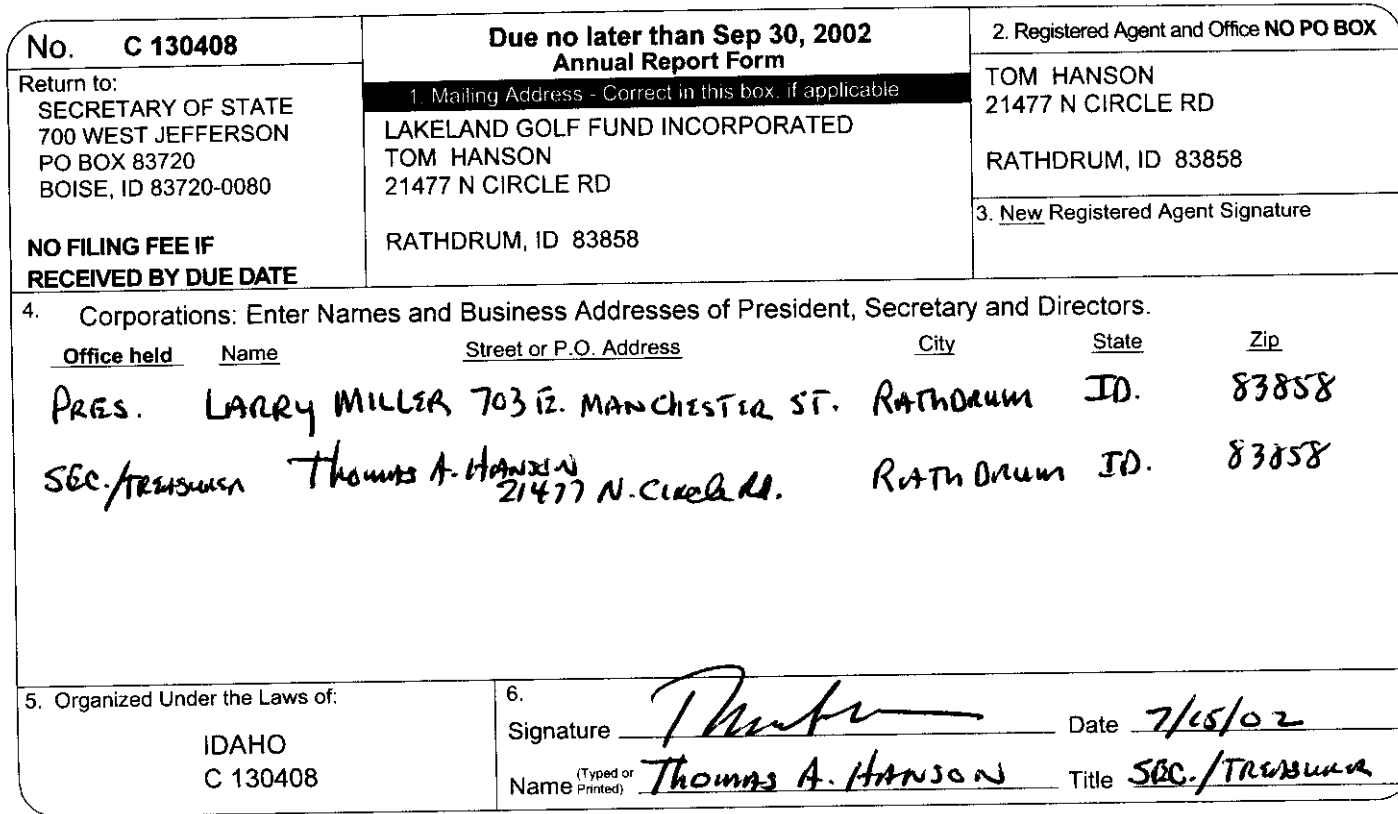 No. C 130408
Return to:
SECRETARY OF STATE
700 WEST JEFFERSON
PO BOX 83720
BOISE, ID 83720-0080
NO FILING FEE IF
RECEIVED BY DUE DATE
Due no later than Sep 30, 2002
Annual Report Form
1. Mailing Address - Correct in this box, if applicable
LAKELAND GOLF FUND INCORPORATED
TOM HANSON
21477 N CIRCLE RD
RATHDRUM, ID 83858
2. Registered Agent and Office NO PO BOX
TOM HANSON
21477 N CIRCLE RD
RATHDRUM, ID 83858
3. New Registered Agent Signature
4. Corporations: Enter Names and Business Addresses of President, Secretary and Directors.
Office held Name Street or P.O. Address City State Zip
PRES. LARRY MILLER 703 E. MANCHESTER ST. RATHDRUM ID. 83858
SEC./TREASURER Thomas A. HANSON 21477 N. Circle Rd. RATHDRUM ID. 83858
5. Organized Under the Laws of:
IDAHO
C 130408
6.
Signature Date 7/15/02
Name (Typed or Printed) Thomas A. HANSON Title SEC./TREASURER